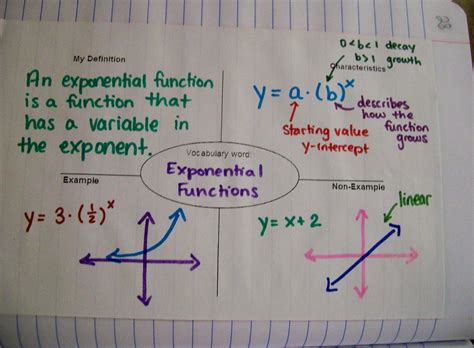 33
My Definition
An exponential function
is a function that
has a variable in
the exponent.
0<b<1 decay
b>1 growth
Characteristics
y = a·(b)ˣ
Starting value
y-intercept
describes
how the
function
grows
Vocabulary word:
Exponential
Functions
Example
y = 3·(½)ˣ
Non-Example
y = x+2
linear